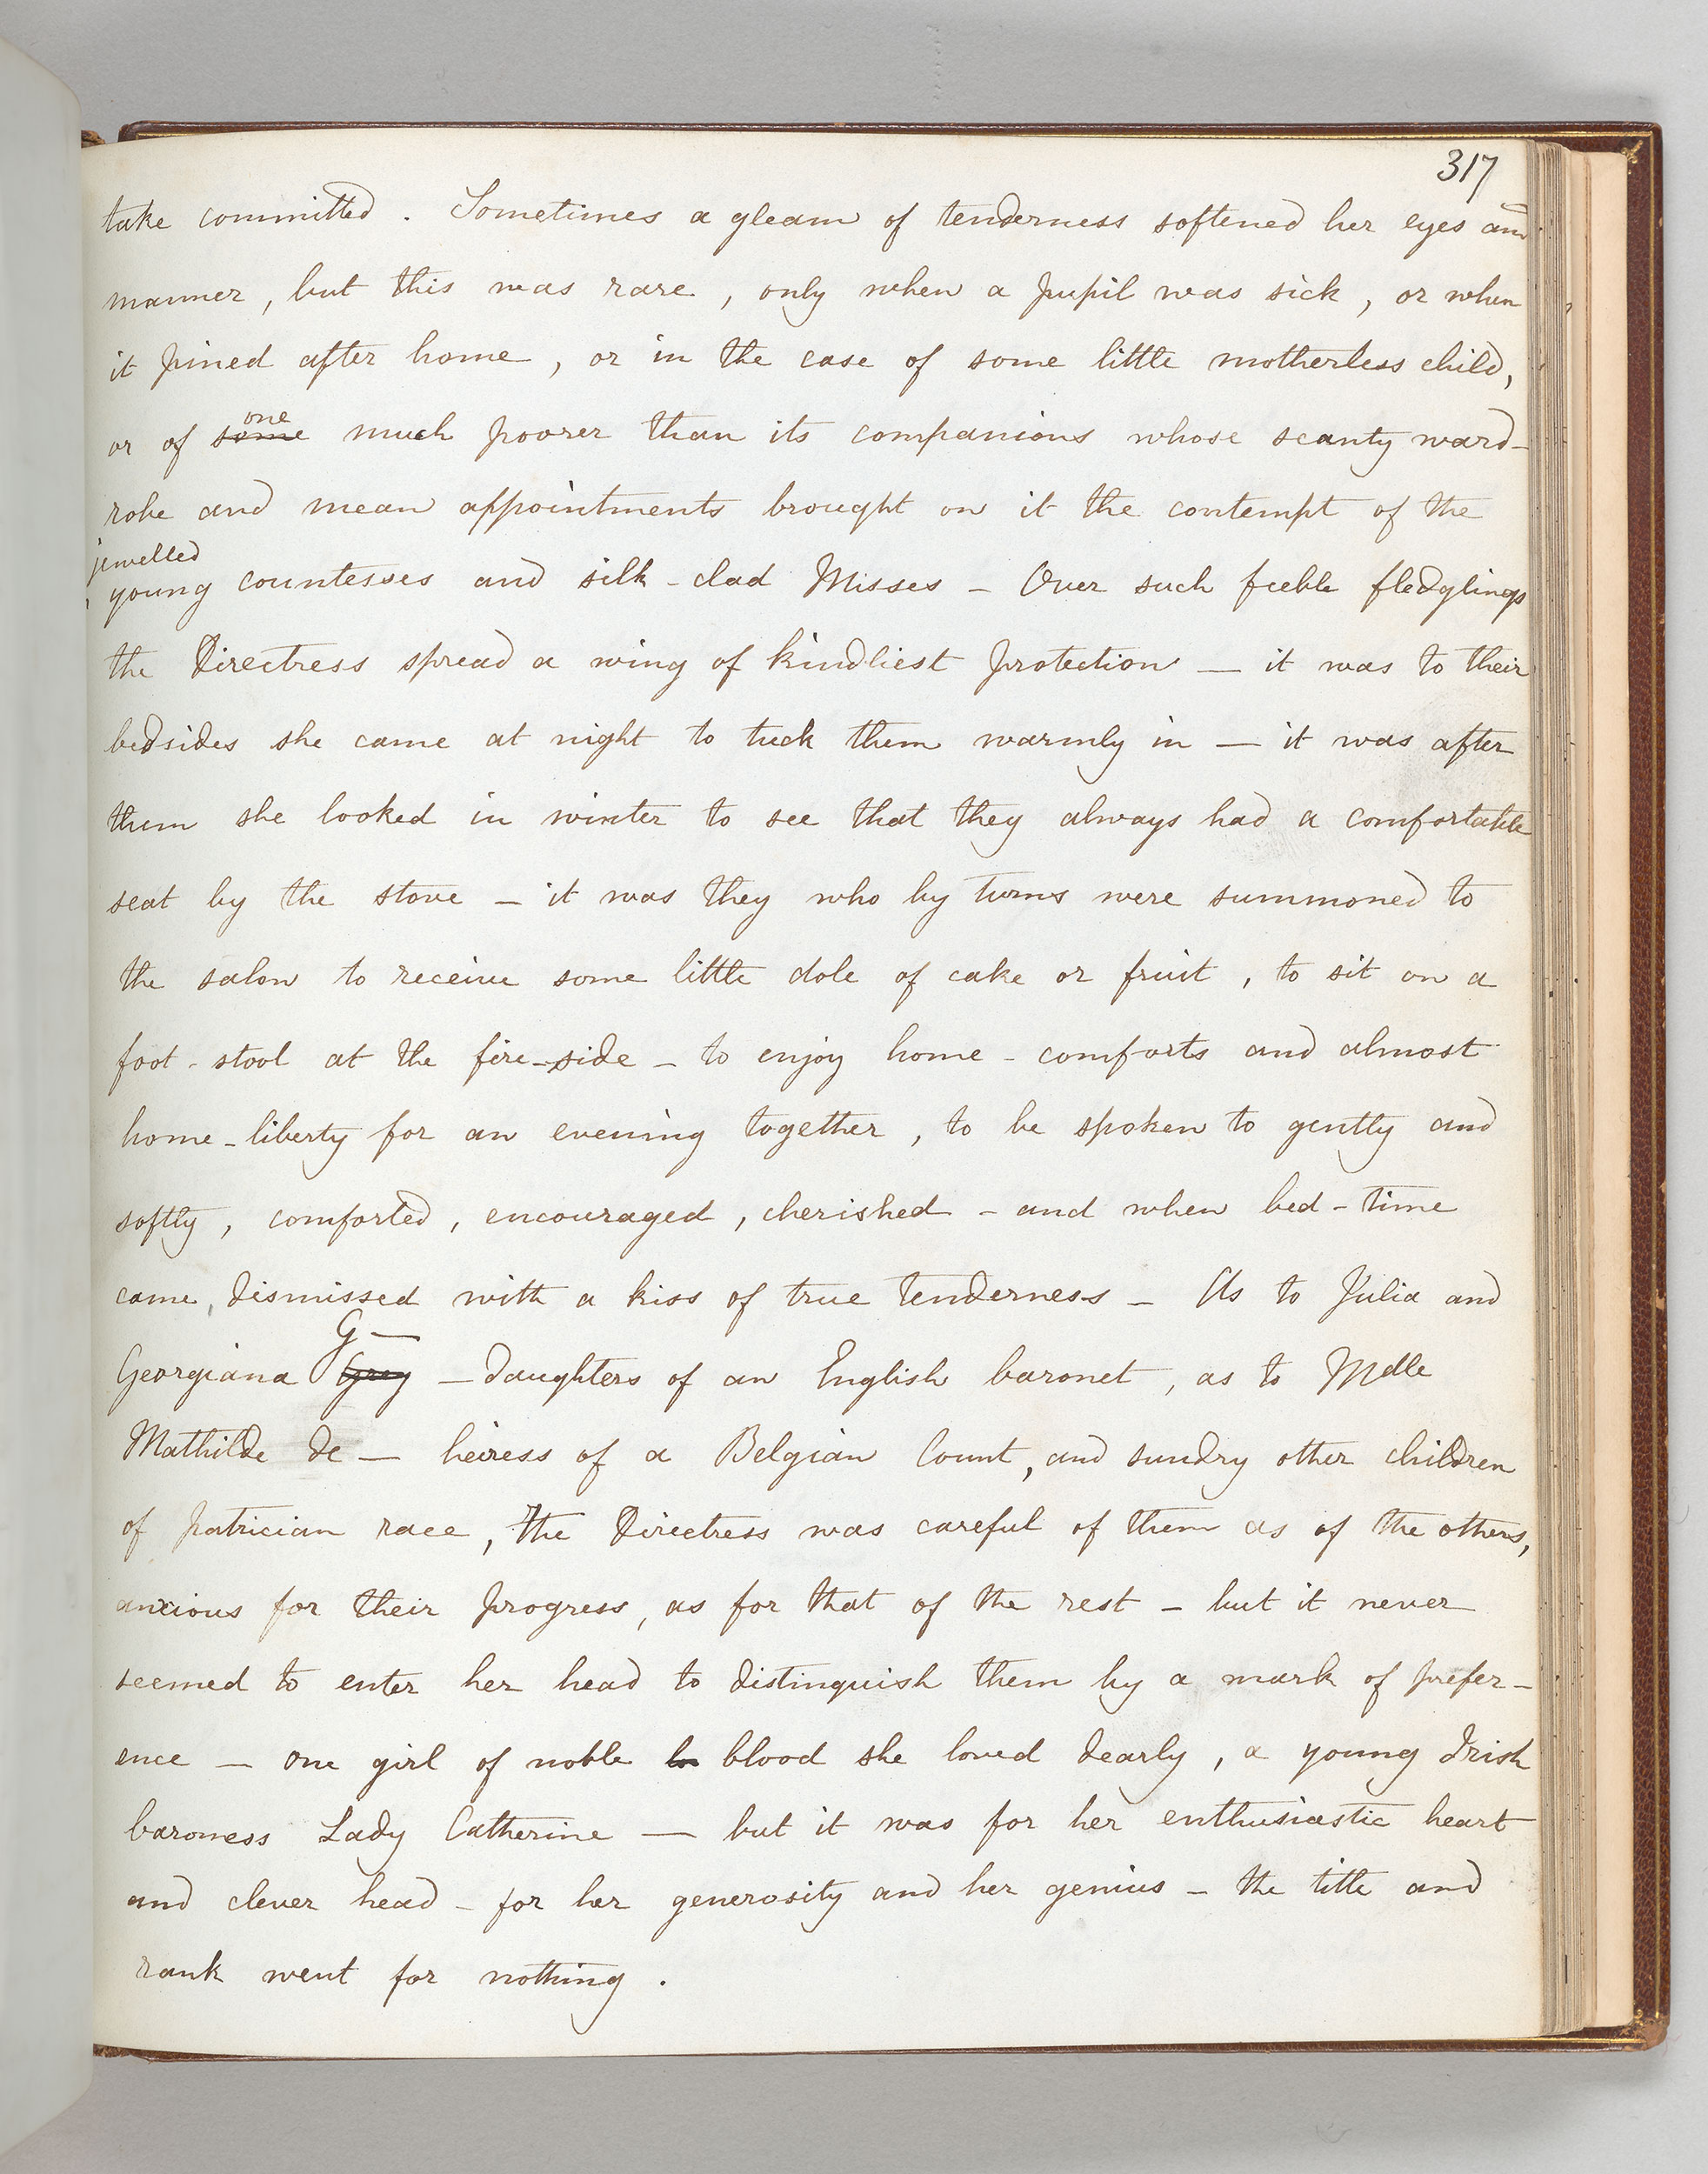 317
take committed. Sometimes a gleam of tenderness softened her eyes and
manner, but this was rare, only when a pupil was sick, or when
it pined after home, or in the case of some little motherless child,
one
or of some much poorer than its companions whose scanty ward-
robe and mean appointments brought on it the contempt of the
jewelled
young countesses and silk-clad Misses — Over such feeble fledglings
the Directress spread a wing of kindliest protection — it was to their
bedsides she came at night to tuck them warmly in — it was after
them she looked in winter to see that they always had a comfortable
seat by the stove — it was they who by turns were summoned to
the salon to receive some little dole of cake or fruit, to sit on a
foot-stool at the fire-side — to enjoy home-comforts and almost
home-liberty for an evening together, to be spoken to gently and
softly, comforted, encouraged, cherished — and when bed-time
came, dismissed with a kiss of true tenderness — As to Julia and
G—
Georgiana Grey — daughters of an English baronet, as to Mdlle
Mathilde de — heiress of a Belgian Count, and sundry other children
of patrician race, the Directress was careful of them as of the others,
anxious for their progress, as for that of the rest — but it never
seemed to enter her head to distinguish them by a mark of prefer-
ence — one girl of noble blood she loved dearly, a young Irish
baroness Lady Catherine — but it was for her enthusiastic heart
and clever head — for her generosity and her genius — the title and
rank went for nothing.